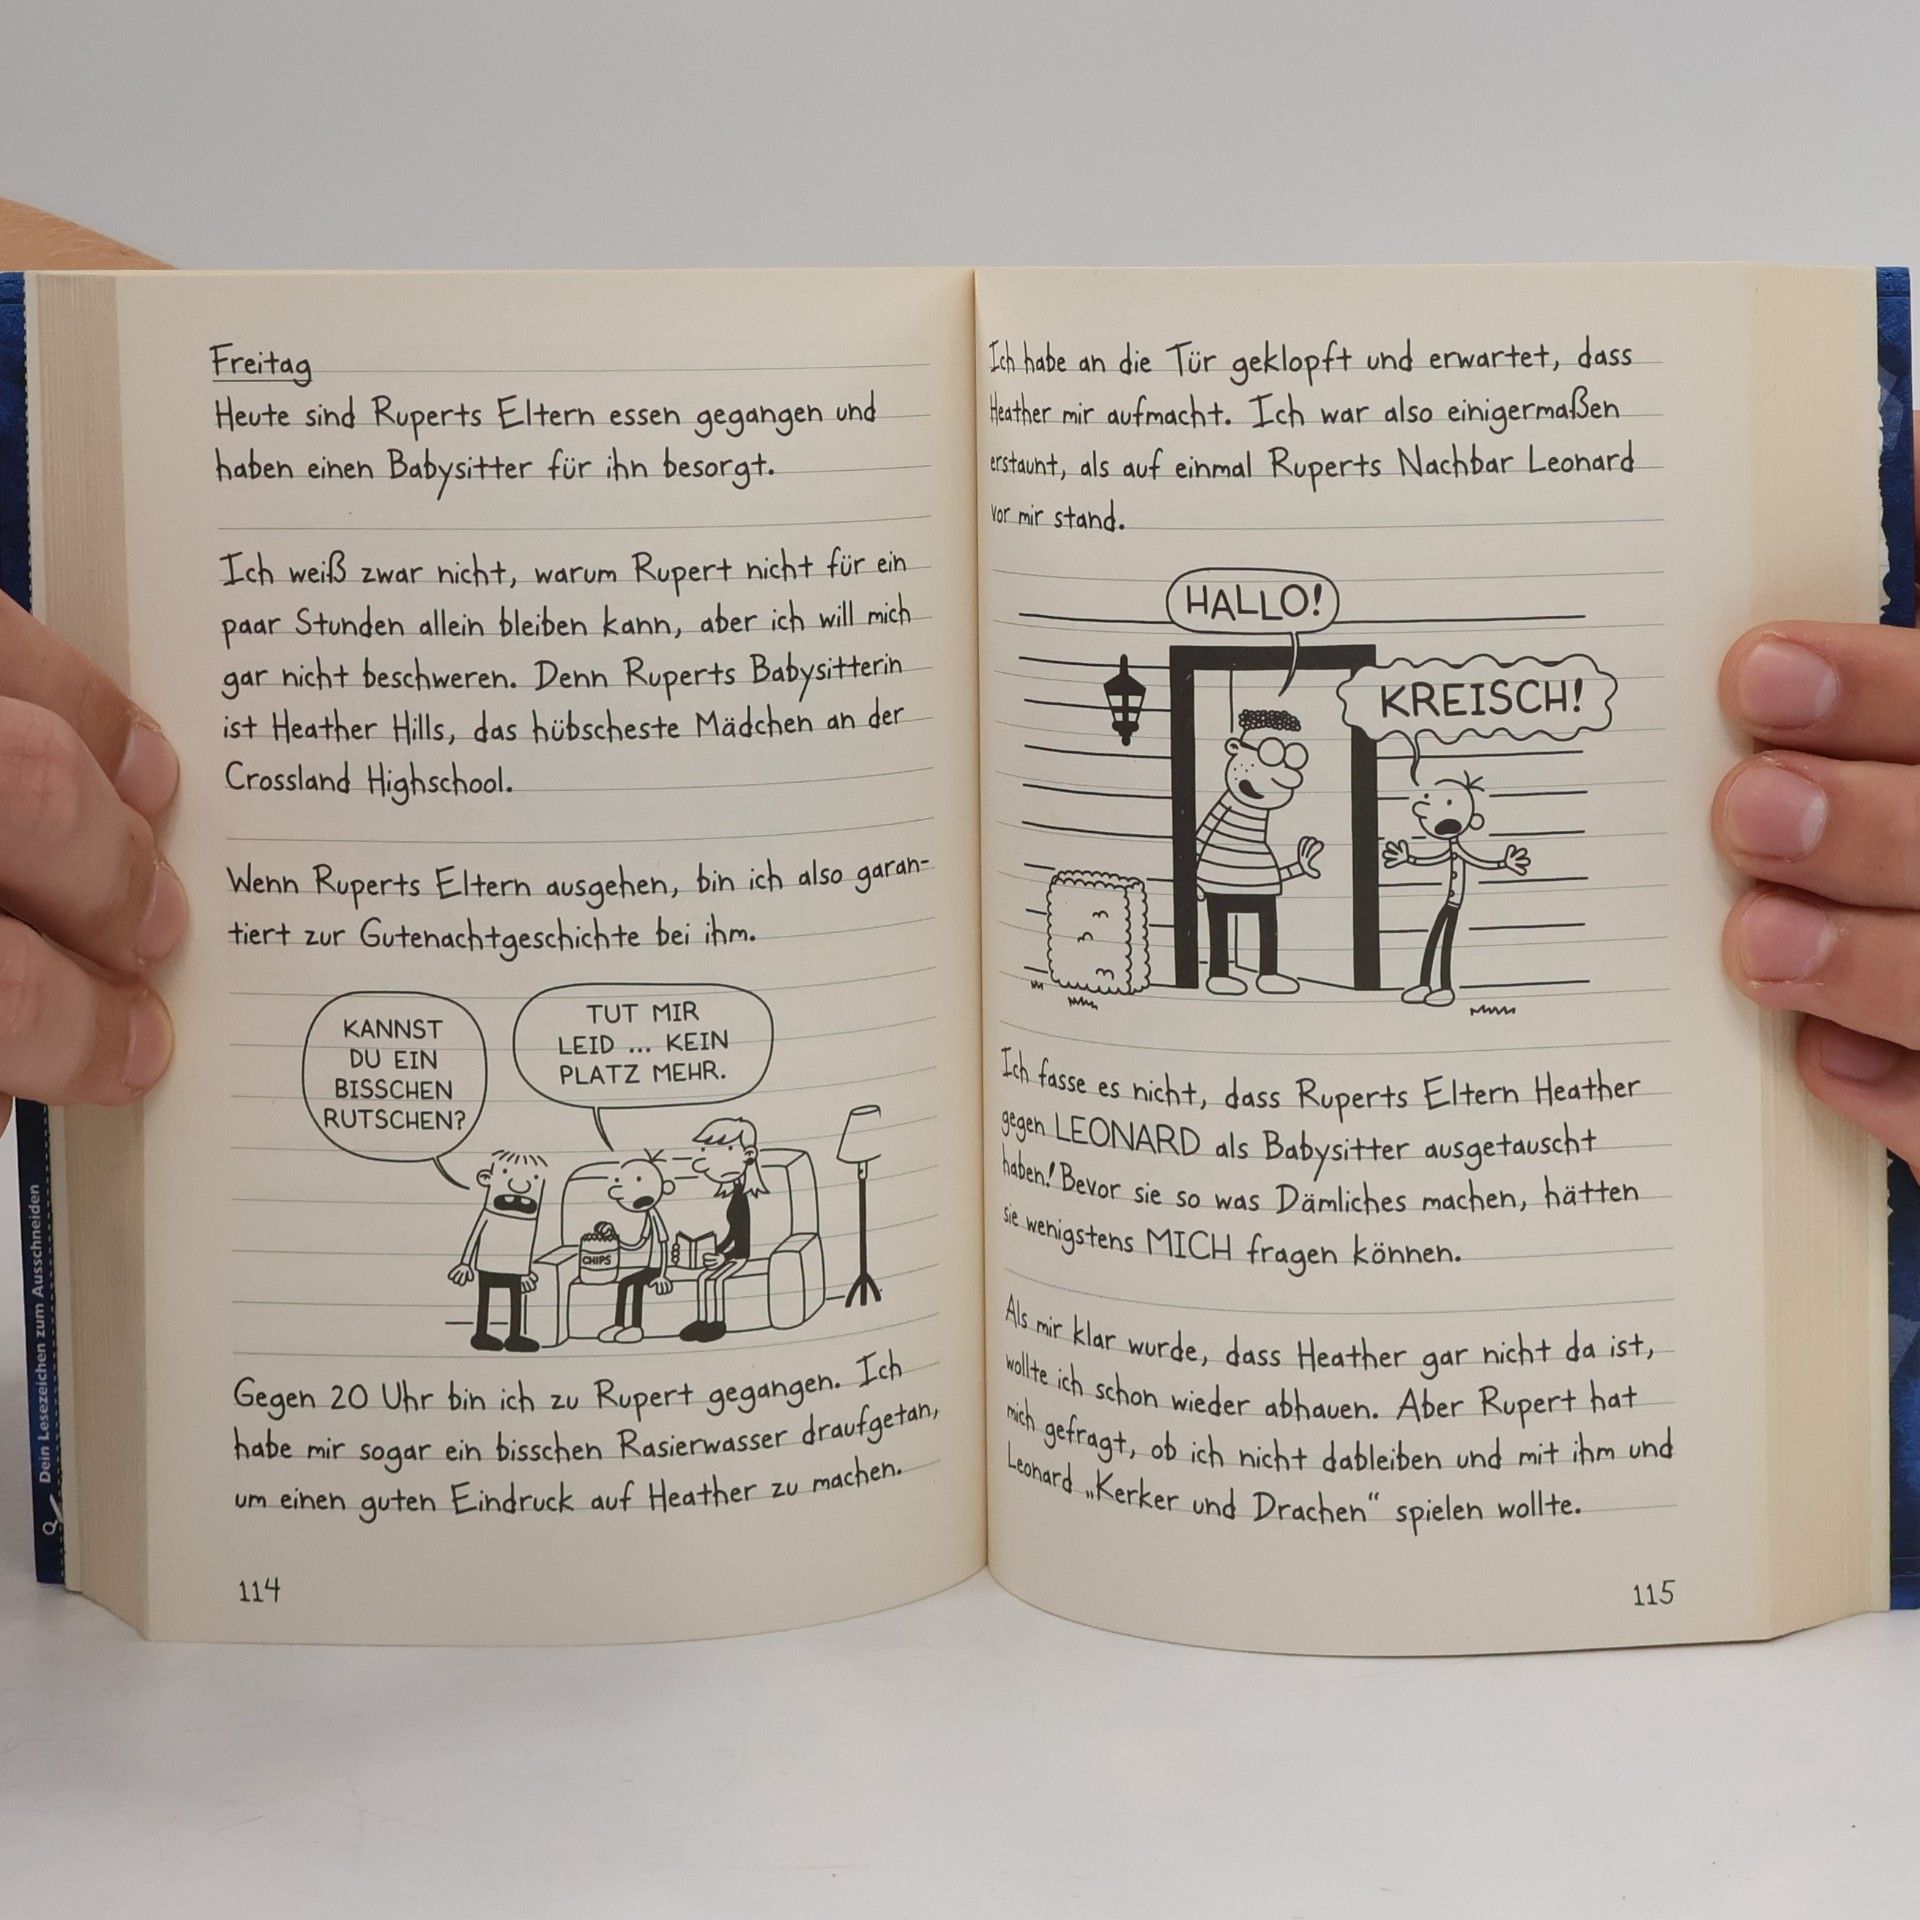 Freitag
Heute sind Ruperts Eltern essen gegangen und
haben einen Babysitter für ihn besorgt.
Ich weiß zwar nicht, warum Rupert nicht für ein
paar Stunden allein bleiben kann, aber ich will mich
gar nicht beschweren. Denn Ruperts Babysitterin
ist Heather Hills, das hübscheste Mädchen an der
Crossland Highschool.
Wenn Ruperts Eltern ausgehen, bin ich also garan-
tiert zur Gutenachtgeschichte bei ihm.
KANNST
DU EIN
BISSCHEN
RUTSCHEN?
TUT MIR
LEID ... KEIN
PLATZ MEHR.
CHIPS
Gegen 20 Uhr bin ich zu Rupert gegangen. Ich
habe mir sogar ein bisschen Rasierwasser draufgetan,
um einen guten Eindruck auf Heather zu machen.
114
Dein Lesezeichen zum Ausschneiden
Ich habe an die Tür geklopft und erwartet, dass
Heather mir aufmacht. Ich war also einigermaßen
erstaunt, als auf einmal Ruperts Nachbar Leonard
vor mir stand.
HALLO!
KREISCH!
Ich fasse es nicht, dass Ruperts Eltern Heather
gegen LEONARD als Babysitter ausgetauscht
haben! Bevor sie so was Dämliches machen, hätten
sie wenigstens MICH fragen können.
Als mir klar wurde, dass Heather gar nicht da ist,
wollte ich schon wieder abhauen. Aber Rupert hat
mich gefragt, ob ich nicht dableiben und mit ihm und
Leonard „Kerker und Drachen“ spielen wollte.
115